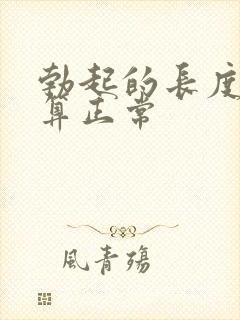 勃起的長度
算正常
風青殤